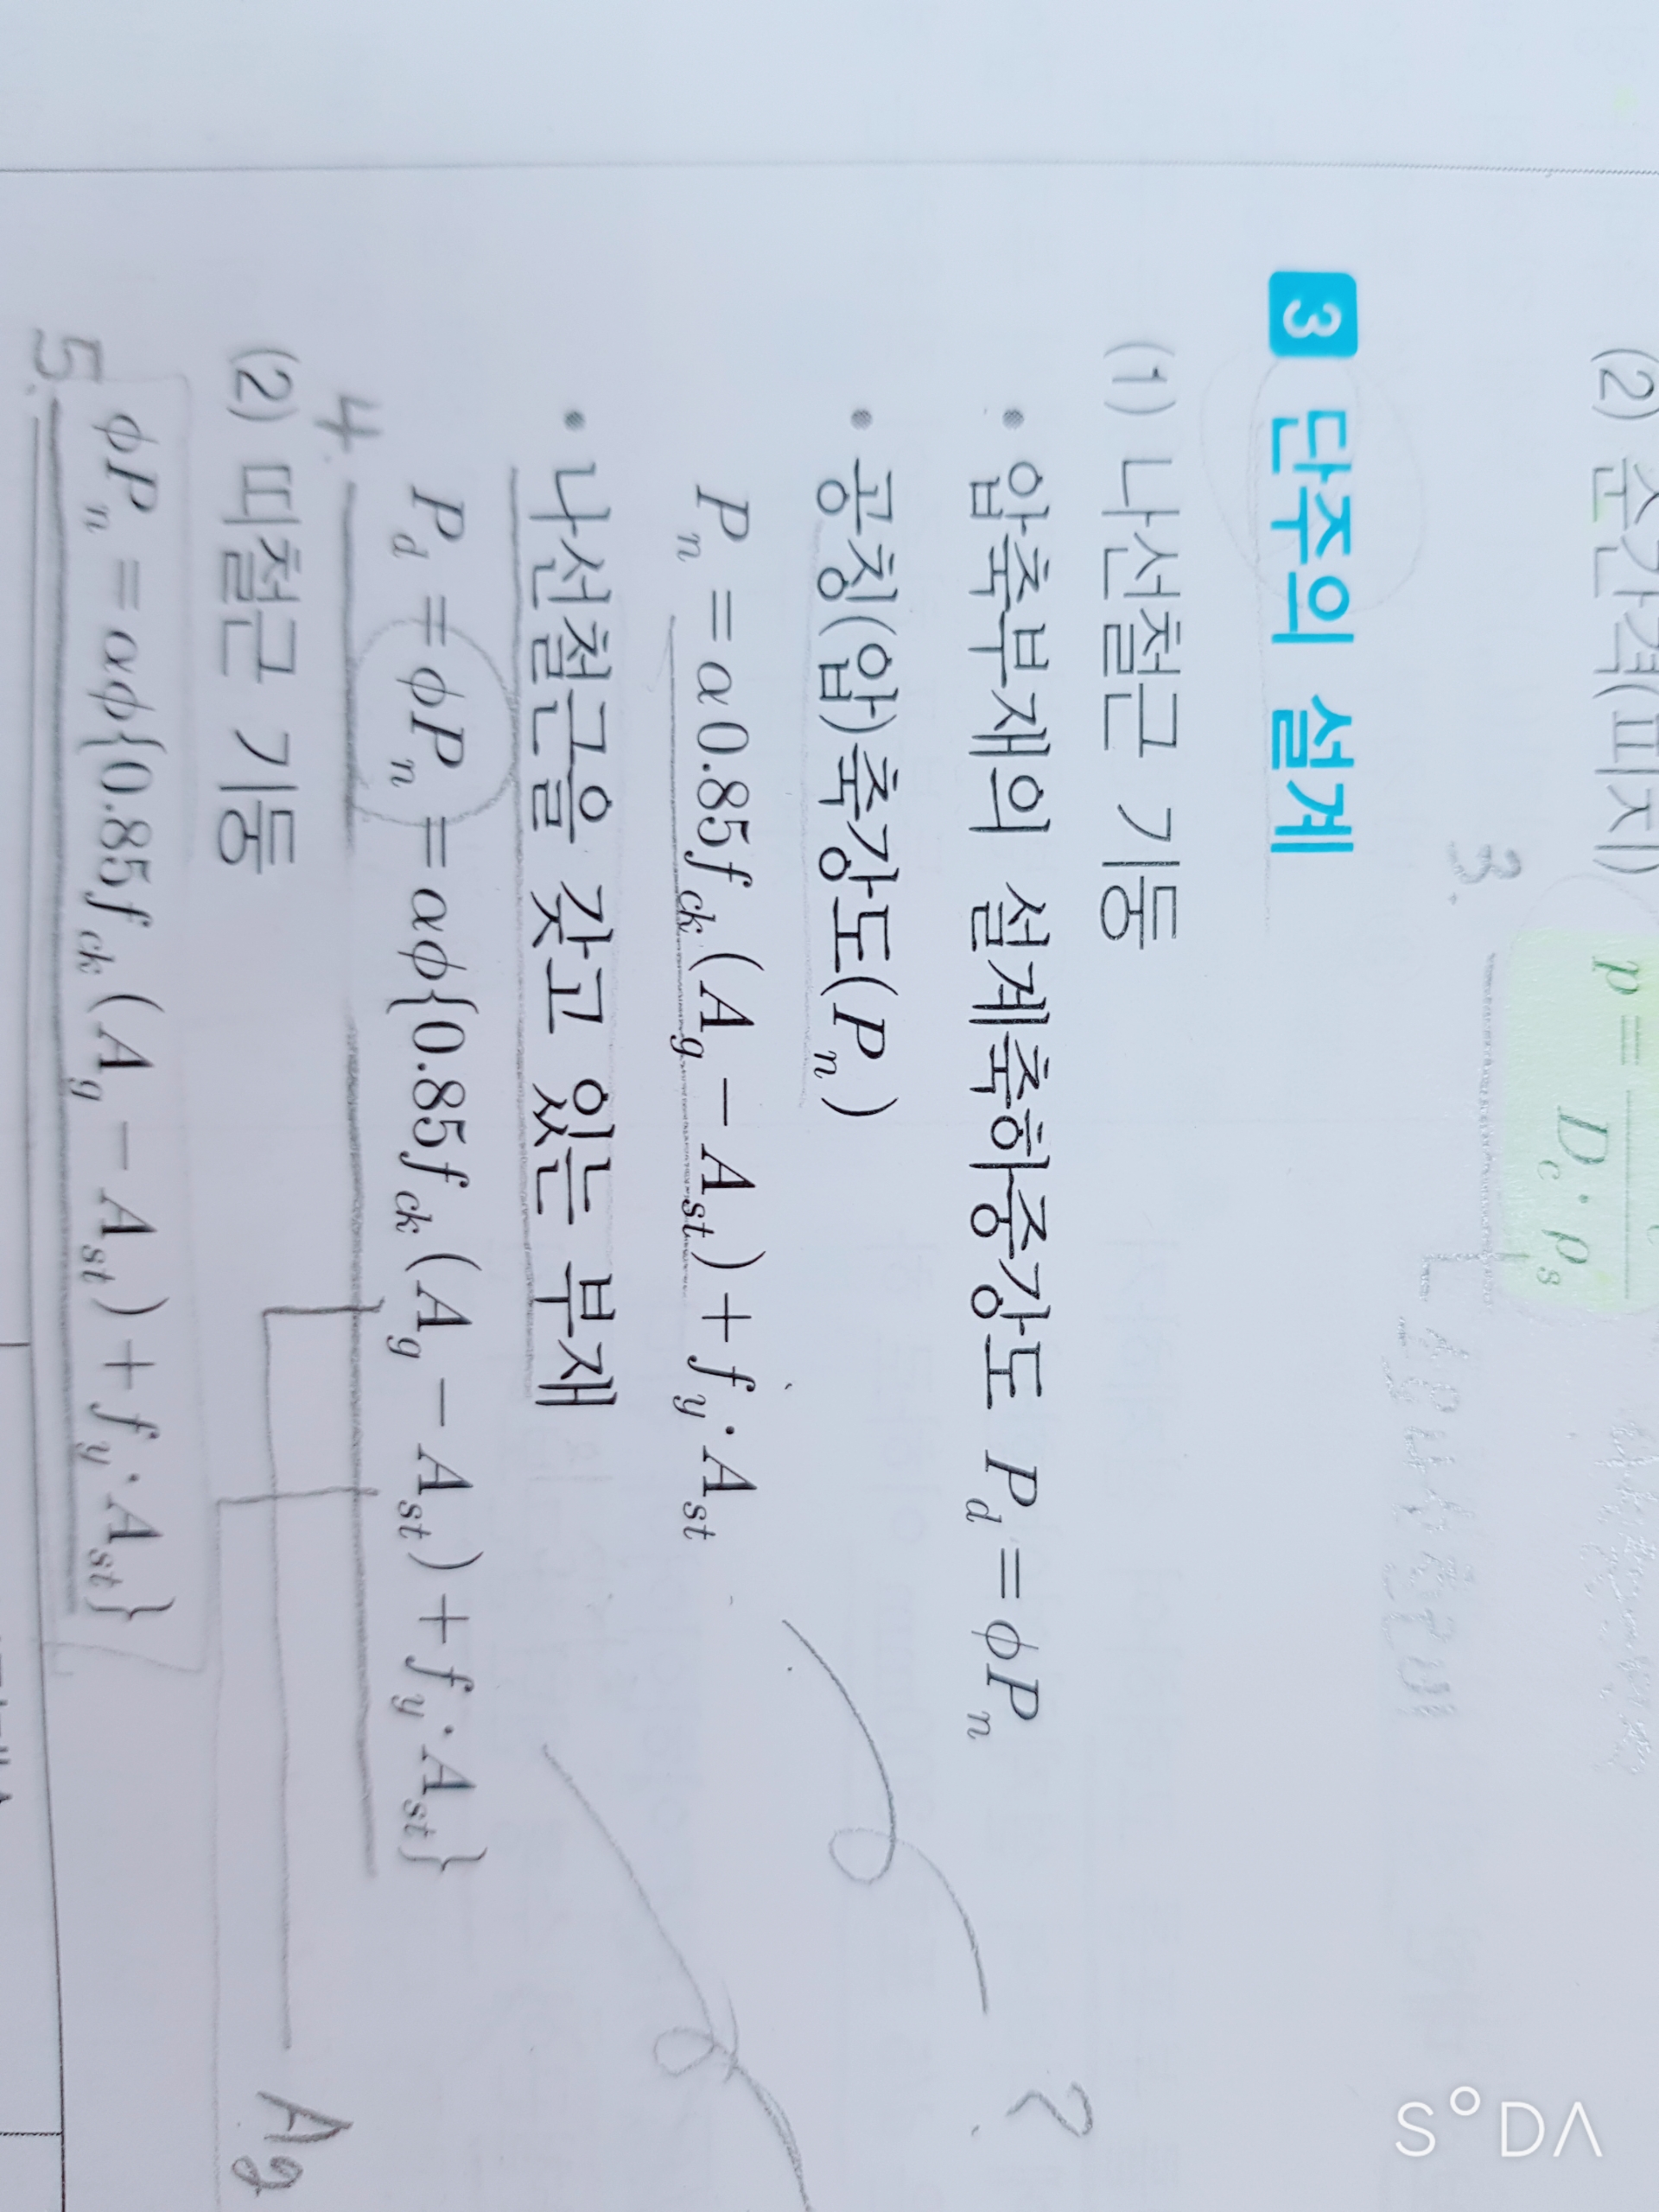 (2) 순간격(피치) p = D_c · ρ_s
3.
3 단주의 설계
(1) 나선철근 기둥
• 압축부재의 설계축하중강도 P_d = ϕP_n
• 공칭(압)축강도(P_n)
P_n = α0.85f_ck(A_g − A_st) + f_y·A_st
?
• 나선철근을 갖고 있는 부재
P_d = ϕP_n = αϕ{0.85f_ck(A_g − A_st) + f_y·A_st}
4.
(2) 띠철근 기둥
Ag
ϕP_n = αϕ{0.85f_ck(A_g − A_st) + f_y·A_st}
5.
SODA